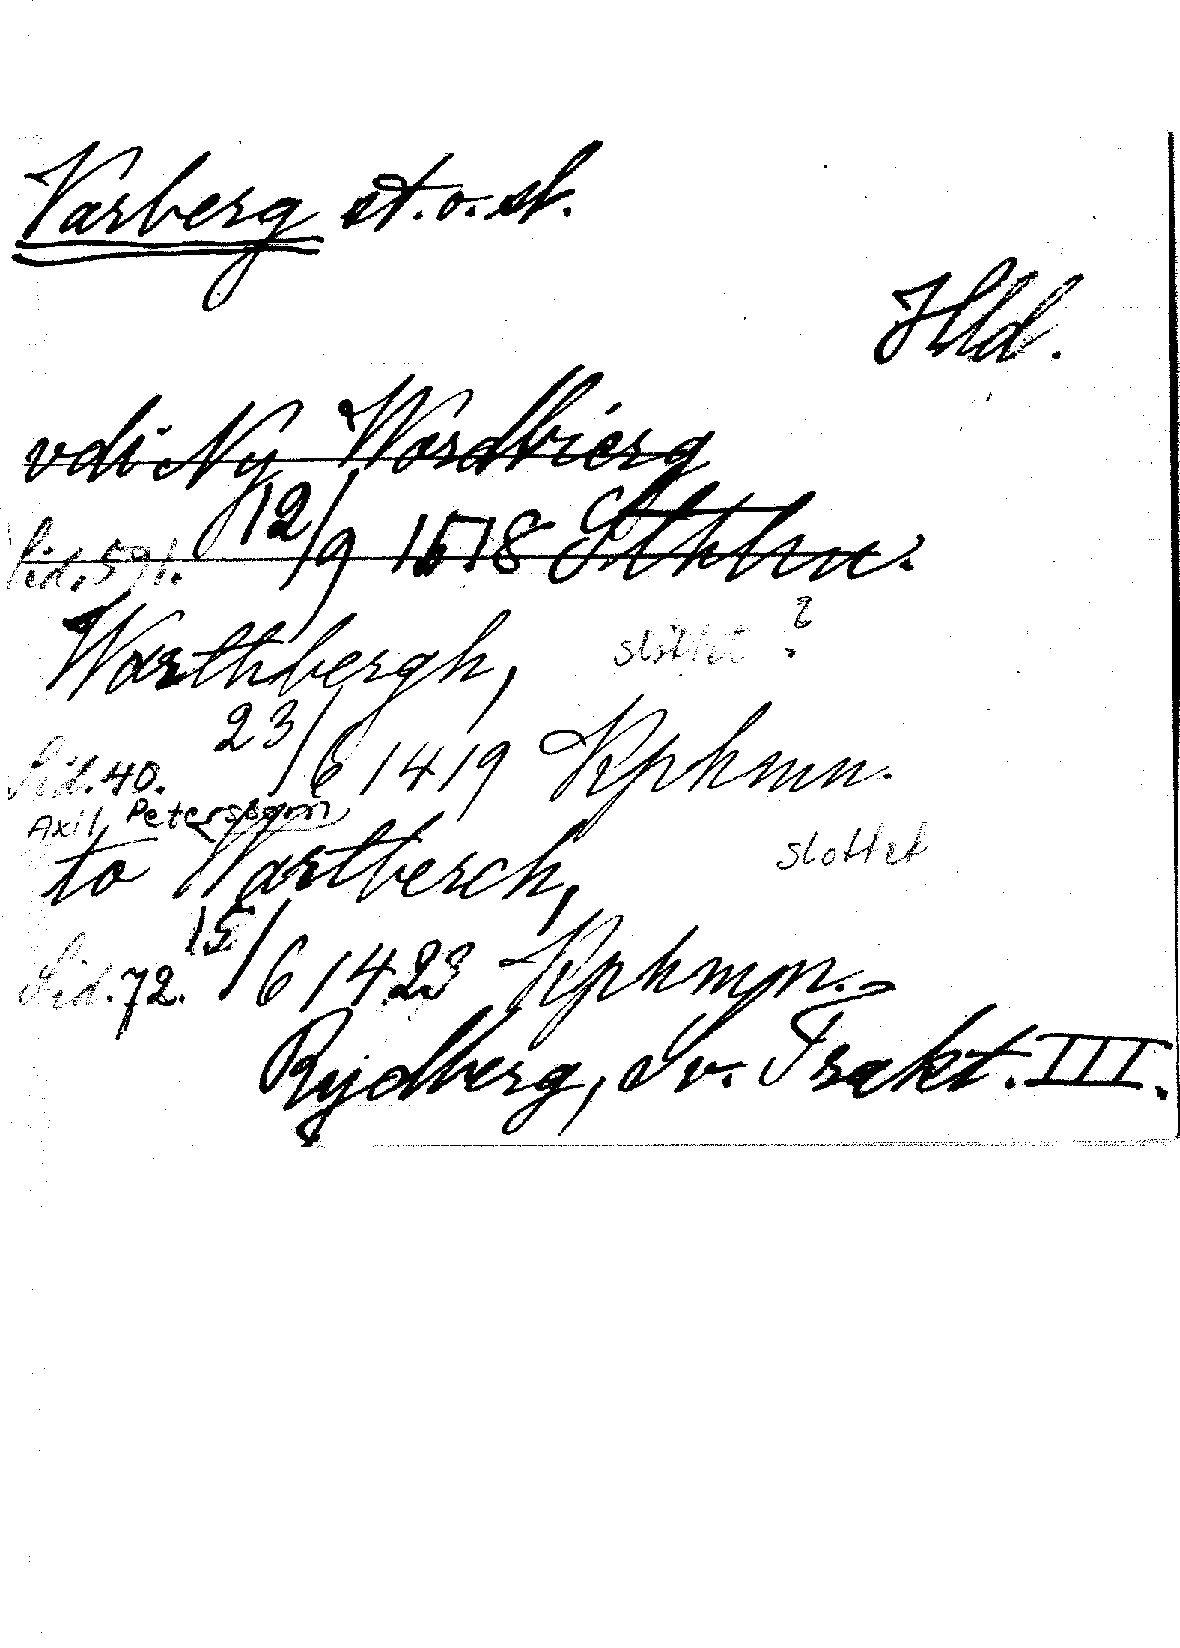 Varberg st. o. sl.
Hld.
vdi Ny Wardbierg
Sid. 591. 12/9 1518 Sthlm.
Warthbergh, slottet ?
Sid. 40. 23/6 1419 Kphmn.
Axil Peterssøm
to Wartberch, slottet
Sid. 72. 15/6 1423 Kphmn.
Rydberg, Sv. Trakt. III.